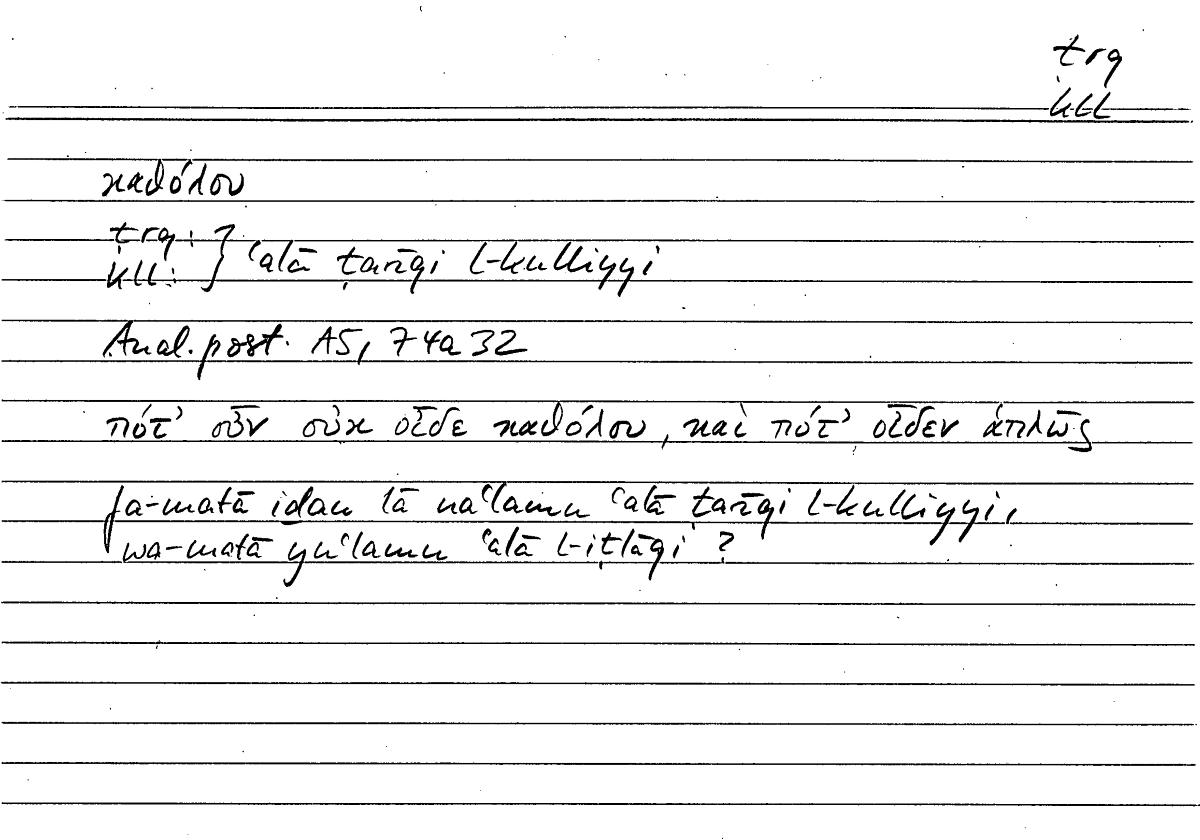 ṭrq
kll
καθόλου
ṭrq:
kll: } ʿalā ṭarīqi l-kulliyyi
Anal. post. A5, 74a32
πότ’ οὖν οὐκ οἶδε καθόλου, καὶ πότ’ οἶδεν ἁπλῶς
fa-matā iḏan lā naʿlamu ʿalā ṭarīqi l-kulliyyi,
wa-matā yuʿlamu ʿalā l-iṭlāqi ?